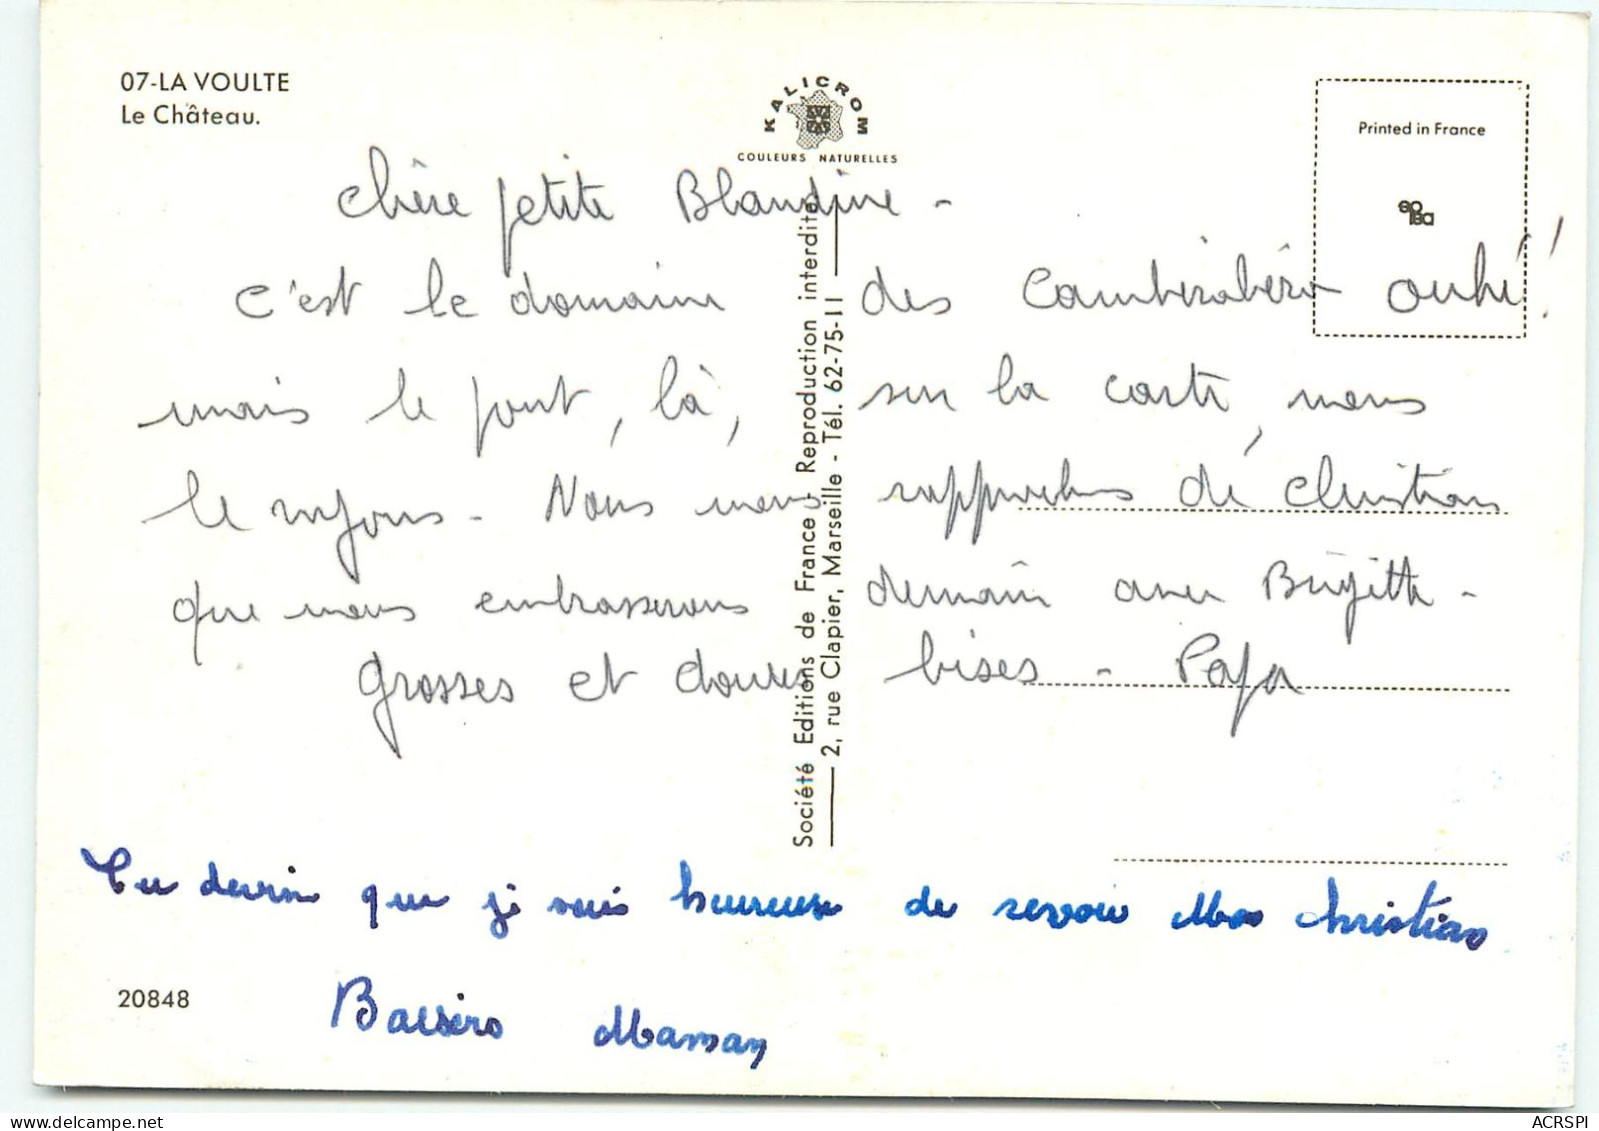 07-LA VOULTE
Le Château.
KALICROM
COULEURS NATURELLES
Printed in France
Chère petite Blandine -
c'est le domaine des
mais le pont, là, sur la carte, nous
le voyons - Nous nous rapprochons de Christian
que nous embrasserons demain avec Brigitte -
grosses et douces bises - Papa
Société Editions de France - Reproduction interdite
2, rue Clapier, Marseille - Tél. 62-75-11
Tu devine que je suis heureuse de revoir Mon Christian
20848
Maman
ACRSPI